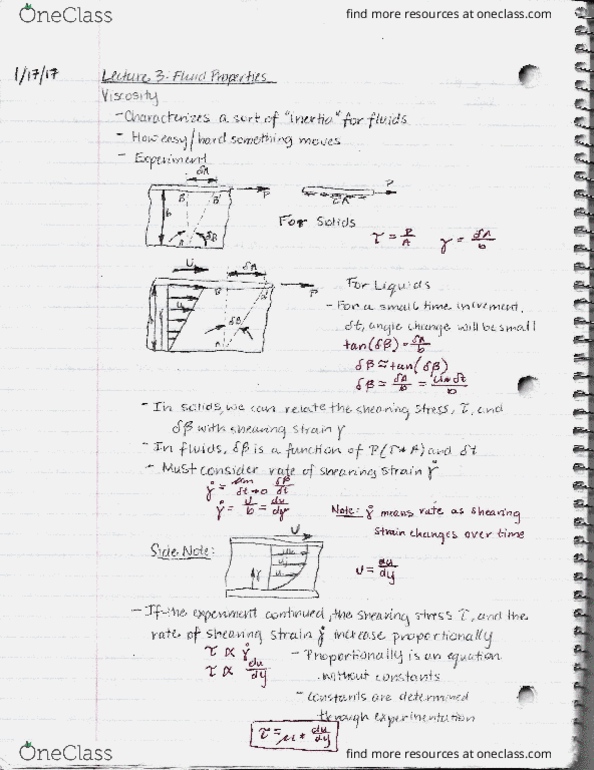 OneClass
find more resources at oneclass.com
1/17/17
Lecture 3: Fluid Properties
Viscosity
- Characterizes a sort of "inertia" for fluids
- How easy/hard something moves
- Experiment
δA
B B' P
b
δβ
A
P
τA
For Solids
τ = P/A γ = δA/b
U δA
B B' P
b
u
δβ
A
For Liquids
- For a small time increment,
δt, angle change will be small
tan(δβ) = δA/b
δβ ≈ tan(δβ)
δβ = δA/b = U * δt/b
- In solids, we can relate the shearing stress, τ, and
δβ with shearing strain γ
- In fluids, δβ is a function of P(τ*A) and δt
- Must consider rate of shearing strain γ̇
γ̇ = lim δt→0 δβ/δt
γ̇ = U/b = du/dy
Note: γ̇ means rate as shearing
strain changes over time
Side Note:
U
u = du/dy
- If the experiment continued, the shearing stress τ, and the
rate of shearing strain γ̇ increase proportionally
τ ∝ γ̇
τ ∝ du/dy
- Proportionally is an equation
without constants
- Constants are determined
through experimentation
τ = μ * du/dy
OneClass
find more resources at oneclass.com